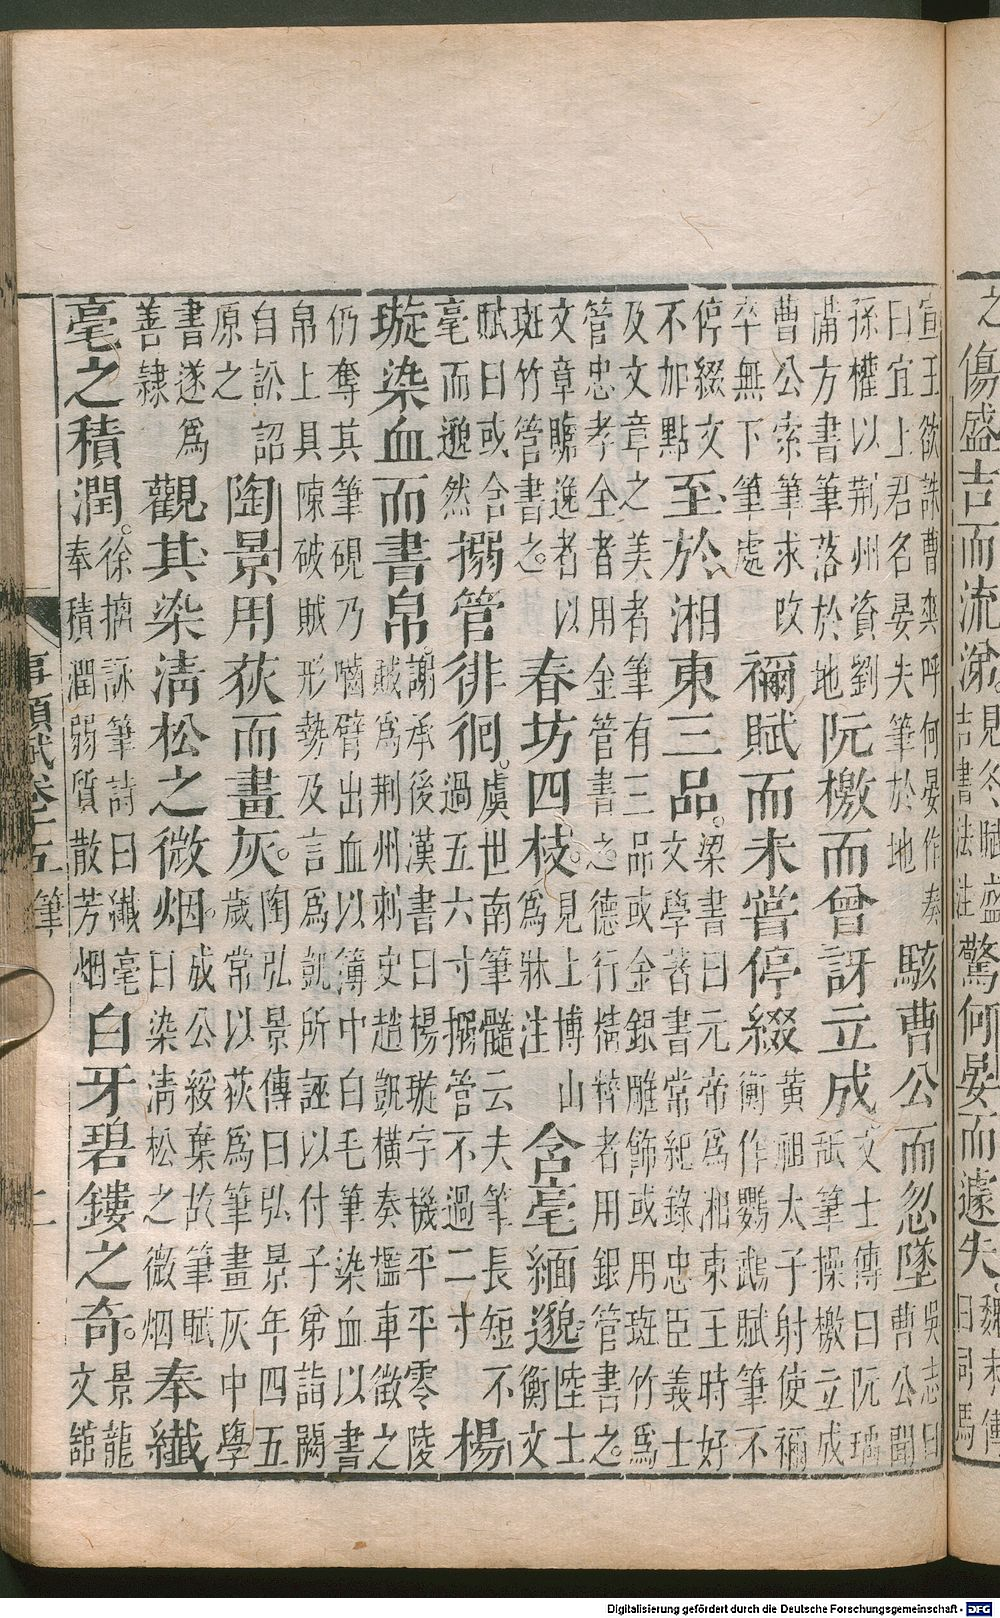 之傷盛吉而流涕見冬賦盛吉書法注驚何晏而遽失魏末傳曰司馬
宣王欲誅曹爽呼何晏作奏曰宜上君名晏失筆於地駭曹公而忽墜吳志曰曹公聞
孫權以荆州資劉備方書筆落於地阮檄而曾訝立成文士傳曰阮瑀舐筆操檄立成
曹公索筆求改卒無下筆處禰賦而未嘗停綴黃祖太子射使禰衡作鸚鵡賦筆不
停綴文不加點至於湘東三品。梁書曰元帝為湘東王時好文學著書常紀錄忠臣義士
及文章之美者筆有三品或金銀雕飾或用斑竹爲管忠孝全者用金管書之德行精粹者用銀管書之。
文章贍逸者以斑竹管書之。春坊四枝。見上博山爲牀注含毫緬邈。陸士衡文
賦曰或含毫而邈然搦管徘徊。虞世南筆髓云夫筆長短不過五六寸搦管不過二寸楊
璇染血而書帛謝承後漢書曰楊璇字機平平零陵賊爲荆州刺史趙凱橫奏檻車徵之
仍奪其筆硯乃嚙臂出血以簿中白毛筆染血以書帛上具陳破賊形勢及言爲凱所誣以付子弟詣闕
自訟詔原之陶景用荻而畫灰。陶弘景傳曰弘景年四五歲常以荻爲筆畫灰中學
書遂爲善隷觀其染淸松之微烟。成公綏棄故筆賦曰染淸松之微烟奉纖
毫之積潤。徐摛詠筆詩曰纖毫奉積潤弱質散芳烟白牙碧鏤之奇。景龍文館
事類賦卷十五 筆
Digitalisierung gefördert durch die Deutsche Forschungsgemeinschaft - DFG